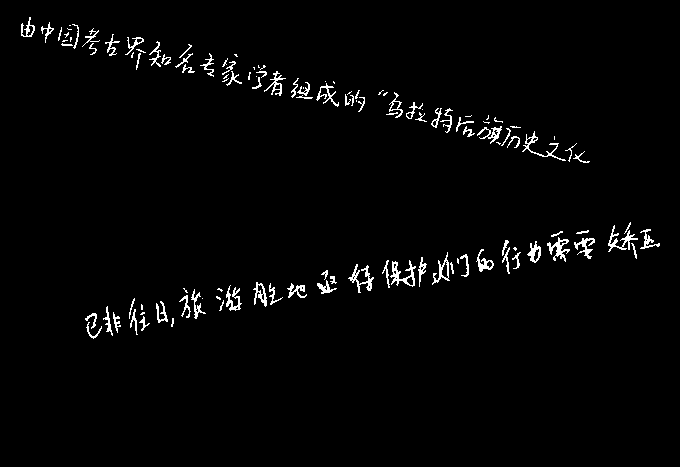 由中国考古界知名专家学者组成的“乌拉特后旗历史文化
已非往日,旅游胜地亟待保护,我们的行为需要矫正